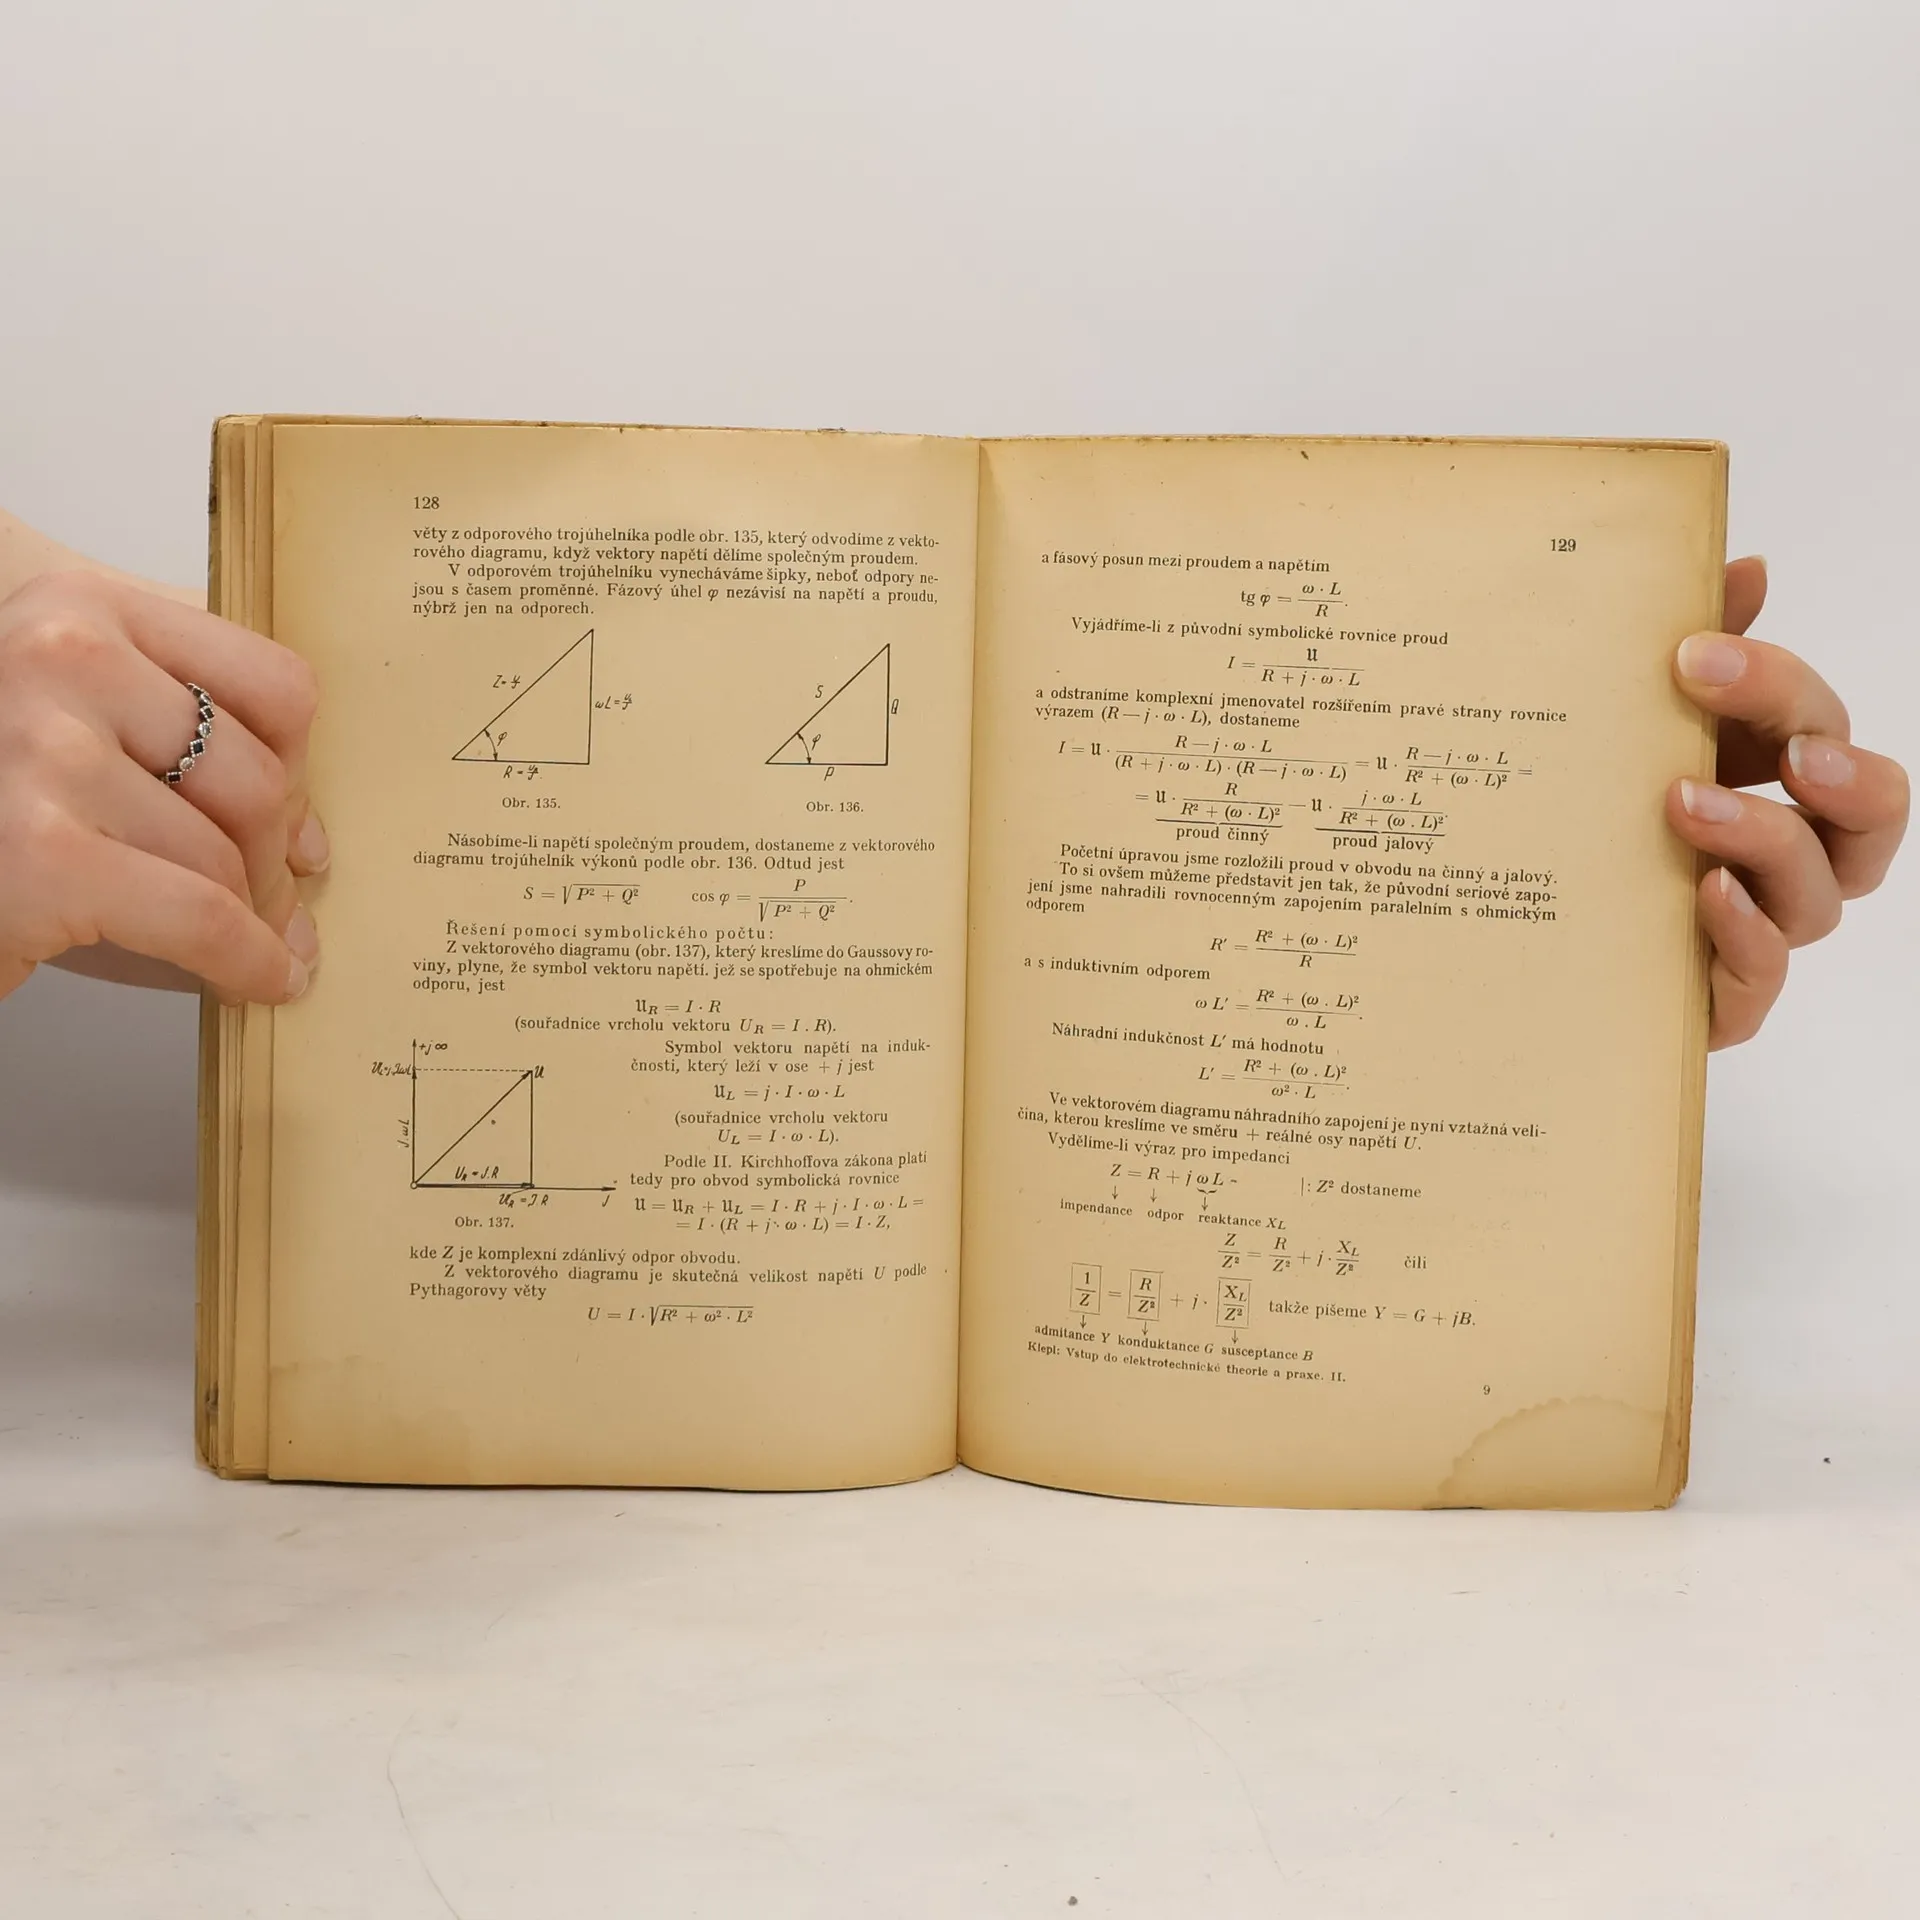 128
věty z odporového trojúhelníka podle obr. 135, který odvodíme z vekto-
rového diagramu, když vektory napětí dělíme společným proudem.
V odporovém trojúhelníku vynecháváme šipky, neboť odpory ne-
jsou s časem proměnné. Fázový úhel φ nezávisí na napětí a proudu,
nýbrž jen na odporech.
φ
S
Q
φ
P
Obr. 135.
Obr. 136.
Násobíme-li napětí společným proudem, dostaneme z vektorového
diagramu trojúhelník výkonů podle obr. 136. Odtud jest
S = √(P² + Q²) cos φ = P / √(P² + Q²).
Řešení pomocí symbolického počtu:
Z vektorového diagramu (obr. 137), který kreslíme do Gaussovy ro-
viny, plyne, že symbol vektoru napětí. jež se spotřebuje na ohmickém
odporu, jest
𝔘R = I · R
(souřadnice vrcholu vektoru UR = I . R).
+j∞
𝔘
J.ωL
UR = J.R
𝔘R = J.R
J
Obr. 137.
Symbol vektoru napětí na induk-
čnosti, který leží v ose + j jest
𝔘L = j · I · ω · L
(souřadnice vrcholu vektoru
UL = I · ω · L).
Podle II. Kirchhoffova zákona platí
tedy pro obvod symbolická rovnice
𝔘 = 𝔘R + 𝔘L = I · R + j · I · ω · L =
= I · (R + j · ω · L) = I · Z,
kde Z je komplexní zdánlivý odpor obvodu.
Z vektorového diagramu je skutečná velikost napětí U podle
Pythagorovy věty
U = I · √(R² + ω² · L²)
129
a fásový posun mezi proudem a napětím
tg φ = ω · L / R.
Vyjádříme-li z původní symbolické rovnice proud
I = 𝔘 / (R + j · ω · L)
a odstraníme komplexní jmenovatel rozšířením pravé strany rovnice
výrazem (R — j · ω · L), dostaneme
I = 𝔘 · (R — j · ω · L) / ((R + j · ω · L) · (R — j · ω · L)) = 𝔘 · (R — j · ω · L) / (R² + (ω · L)²) =
= 𝔘 · R / (R² + (ω · L)²) — 𝔘 · j · ω · L / (R² + (ω . L)²)
proud činný proud jalový
Početní úpravou jsme rozložili proud v obvodu na činný a jalový.
To si ovšem můžeme představit jen tak, že původní seriové zapo-
jení jsme nahradili rovnocenným zapojením paralelním s ohmickým
odporem
R′ = (R² + (ω · L)²) / R
a s induktivním odporem
ω L′ = (R² + (ω . L)²) / (ω . L).
Náhradní indukčnost L′ má hodnotu
L′ = (R² + (ω . L)²) / (ω² · L).
Ve vektorovém diagramu náhradního zapojení je nyní vztažná veli-
čina, kterou kreslíme ve směru + reálné osy napětí U.
Vydělíme-li výraz pro impedanci
Z = R + j ω L |: Z² dostaneme
↓ ↓ ↓
impendance odpor reaktance XL
Z / Z² = R / Z² + j · XL / Z² čili
1 / Z = R / Z² + j · XL / Z² takže píšeme Y = G + jB.
↓ ↓ ↓
admitance Y konduktance G susceptance B
Klepl: Vstup do elektrotechnické theorie a praxe. II.
9